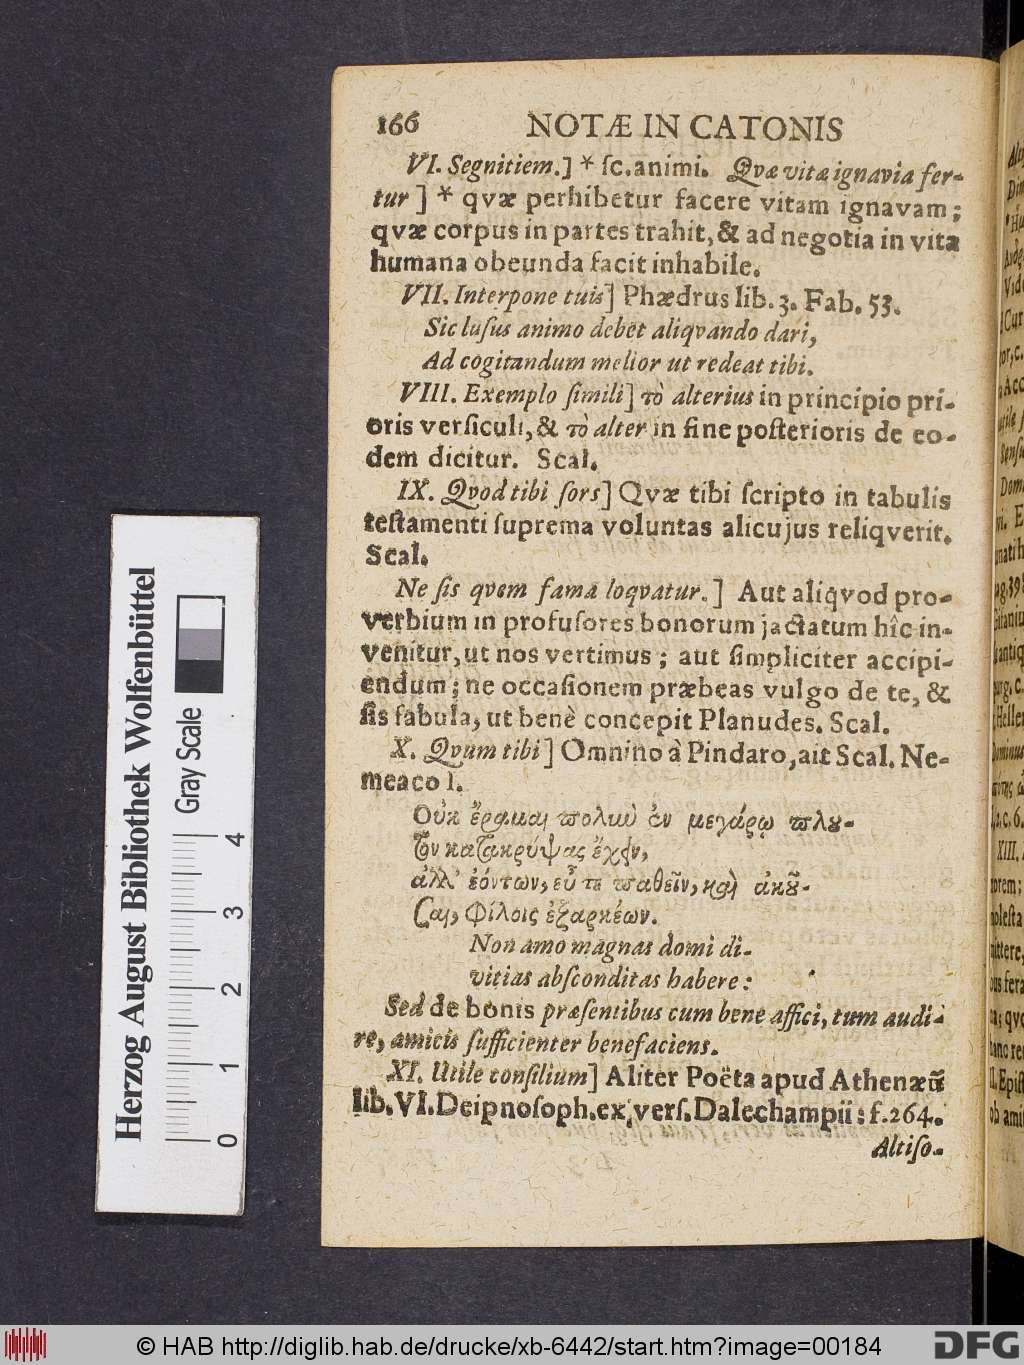 166 NOTÆ IN CATONIS
VI. Segnitiem.] * ſc. animi. Qvæ vitæ ignavia fer-
tur ] * qvæ perhibetur facere vitam ignavam;
qvæ corpus in partes trahit, & ad negotia in vita
humana obeunda facit inhabile.
VII. Interpone tuis] Phædrus lib. 3. Fab. 53.
Sic luſus animo debēt aliqvando dari,
Ad cogitandum melior ut redeat tibi.
VIII. Exemplo ſimili] τὸ alterius in principio pri-
oris verſiculi, & τὸ alter in fine poſterioris de eo-
dem dicitur. Scal.
IX. Qvod tibi ſors] Qvæ tibi ſcripto in tabulis
teſtamenti ſuprema voluntas alicujus reliqverit.
Scal.
Ne ſis qvem fama loqvatur.] Aut aliqvod pro-
verbium in profuſores bonorum jactatum hîc in-
venitur, ut nos vertimus; aut ſimpliciter accipi-
endum; ne occaſionem præbeas vulgo de te, &
ſis fabula, ut benè concepit Planudes. Scal.
X. Qvum tibi] Omnino à Pindaro, ait Scal. Ne-
meaco I.
Οὐκ ἔραμαι πολιὺ ἐν μεγάρῳ πλȣ-
τον κατακρύψας ἔχειν,
ἀλλ' ἐόντων, εὖ τε παθεῖν, καὶ ἀκȣ͂-
σαι, Φίλοις ἐξαρκέων.
Non amo magnas domi di-
vitias abſconditas habere:
Sed de bonis præſentibus cum bene affici, tum audi-
re, amicis ſufficienter benefaciens.
XI. Utile conſilium] Aliter Poëta apud Athenæū
lib. VI. Deipnoſoph. ex verſ. Dalechampii: f. 264.
Altiſo-
Herzog August Bibliothek Wolfenbüttel
Gray Scale
0 1 2 3 4
© HAB http://diglib.hab.de/drucke/xb-6442/start.htm?image=00184
DFG